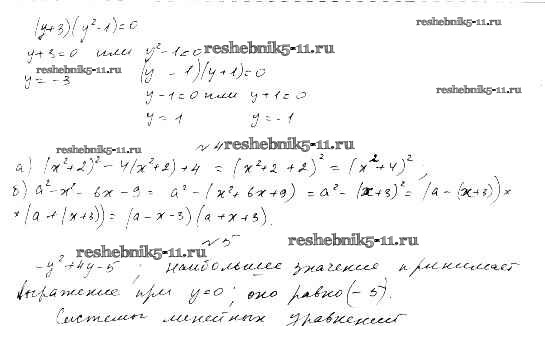 (y+3)(y²-1)=0
reshebnik5-11.ru
y+3=0 или y²-1=0 reshebnik5-11.ru
reshebnik5-11.ru
y=-3 (y-1)(y+1)=0
reshebnik5-11.ru
y-1=0 или y+1=0
y=1 y=-1
reshebnik5-11.ru №4 reshebnik5-11.ru
а) (x²+2)²-4(x²+2)+4 = (x²+2+2)² = (x²+4)²;
б) a²-x²-6x-9 = a²-(x²+6x+9) = a²-(x+3)² = (a-(x+3))×
×(a+(x+3)) = (a-x-3)(a+x+3).
№5 reshebnik5-11.ru
reshebnik5-11.ru
-y²+4y-5; наибольшее значение принимает
выражение при y=0; оно равно (-5).
Системы линейных уравнений